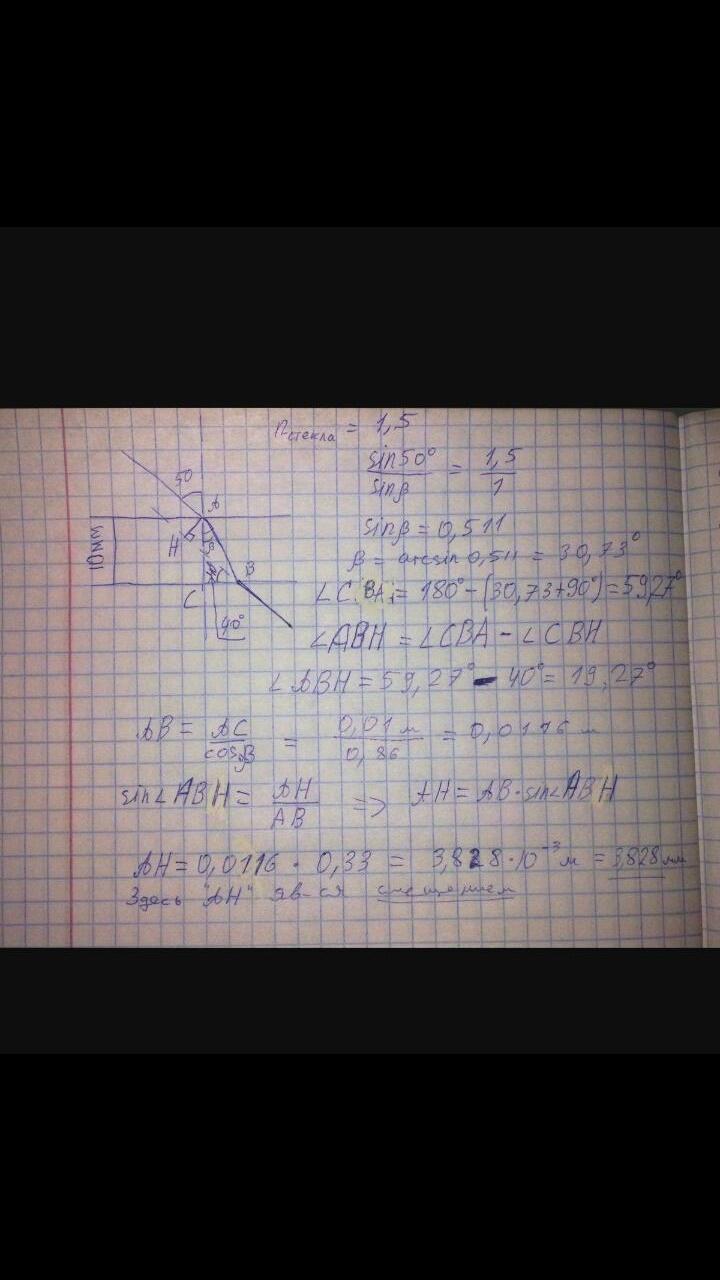 nстекла = 1,5
sin50° / sinβ = 1,5 / 1
50
A
sinβ = 0,511
10мм
H
β
β = arcsin 0,511 = 30,73°
B
∠CBA = 180° - (30,73+90°) = 59,27°
C
40°
∠ABH = ∠CBA - ∠CBH
∠ABH = 59,27° - 40° = 19,27°
AB = AC / cosβ = 0,01 м / 0,86 = 0,0116 м
sin∠ABH = AH / AB => AH = AB·sin∠ABH
AH = 0,0116 · 0,33 = 3,828·10⁻³ м = 3,828 мм
Здесь "AH" яв-ся смещением